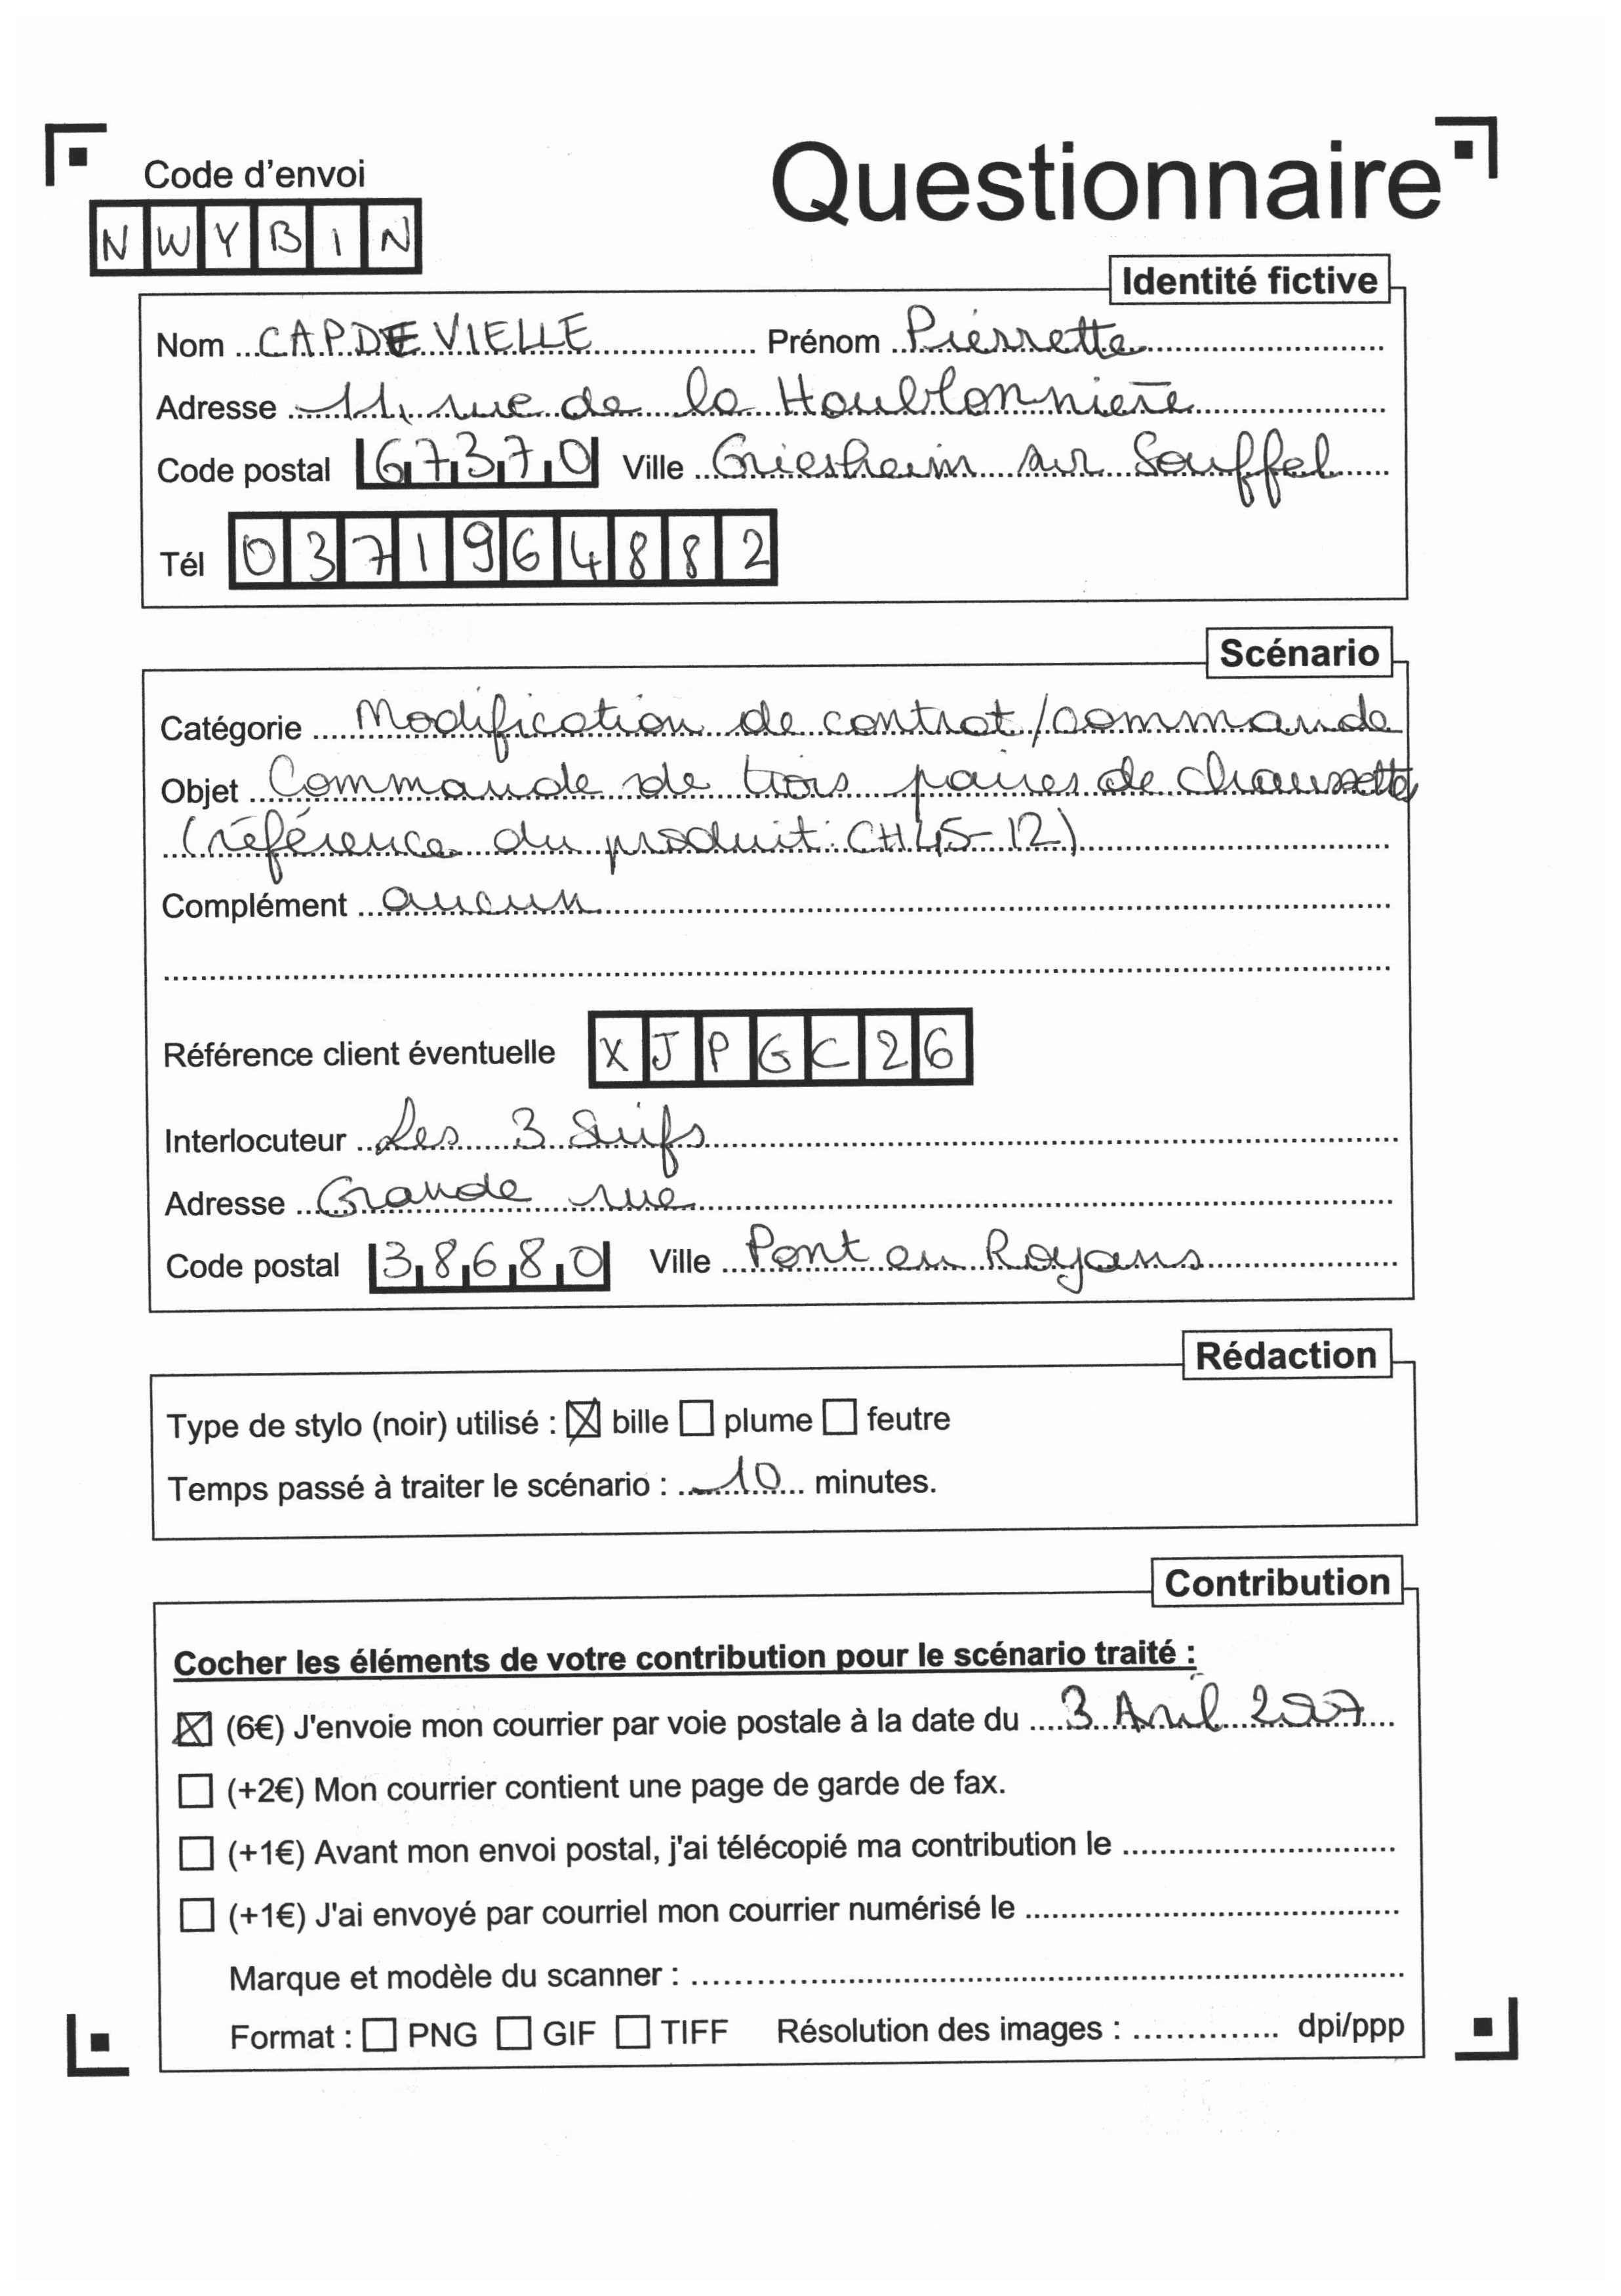 Code d'envoi
Questionnaire
NWYBIN
Identité fictive
Nom CAPDEVIELLE Prénom Pierrette
Adresse 11, rue de la Houblonnière
Code postal 67370 Ville Griesheim sur Souffel
Tél 0371964882
Scénario
Catégorie Modification de contrat/commande
Objet Commande de trois paires de chaussettes
(référence du produit: CH45-12)
Complément aucun
Référence client éventuelle XJPGC26
Interlocuteur Les 3 Suifs
Adresse Grande rue
Code postal 38680 Ville Pont en Royans
Rédaction
Type de stylo (noir) utilisé : ☒ bille ☐ plume ☐ feutre
Temps passé à traiter le scénario : 10 minutes.
Contribution
Cocher les éléments de votre contribution pour le scénario traité :
☒ (6€) J'envoie mon courrier par voie postale à la date du 3 Avril 2007
☐ (+2€) Mon courrier contient une page de garde de fax.
☐ (+1€) Avant mon envoi postal, j'ai télécopié ma contribution le
☐ (+1€) J'ai envoyé par courriel mon courrier numérisé le
Marque et modèle du scanner :
Format : ☐ PNG ☐ GIF ☐ TIFF Résolution des images : dpi/ppp